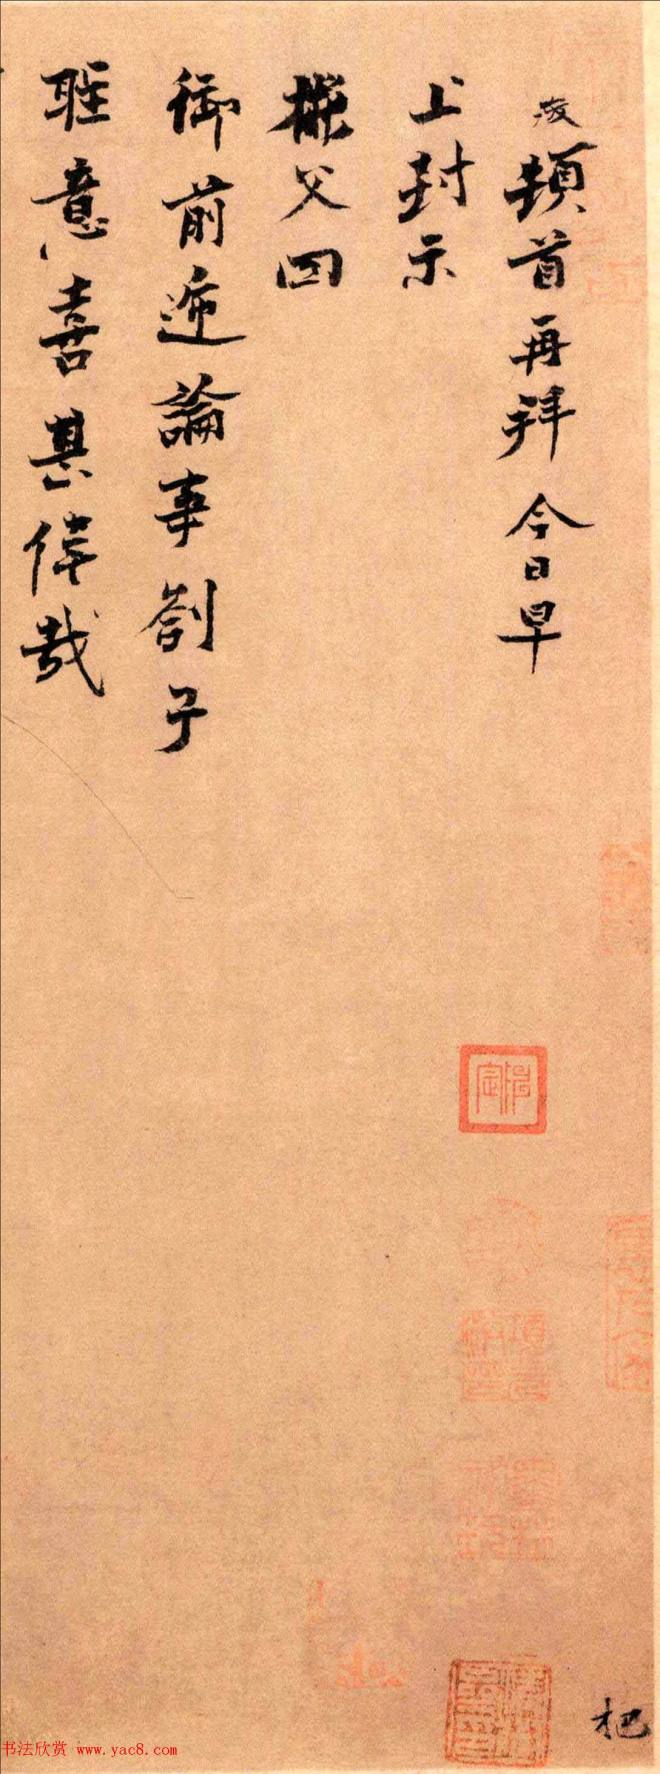 浚頓首再拜 今日早
上封示
父回
御前遞論事劄子
聖意喜甚偉哉
杷
书法欣赏 www.yac8.com